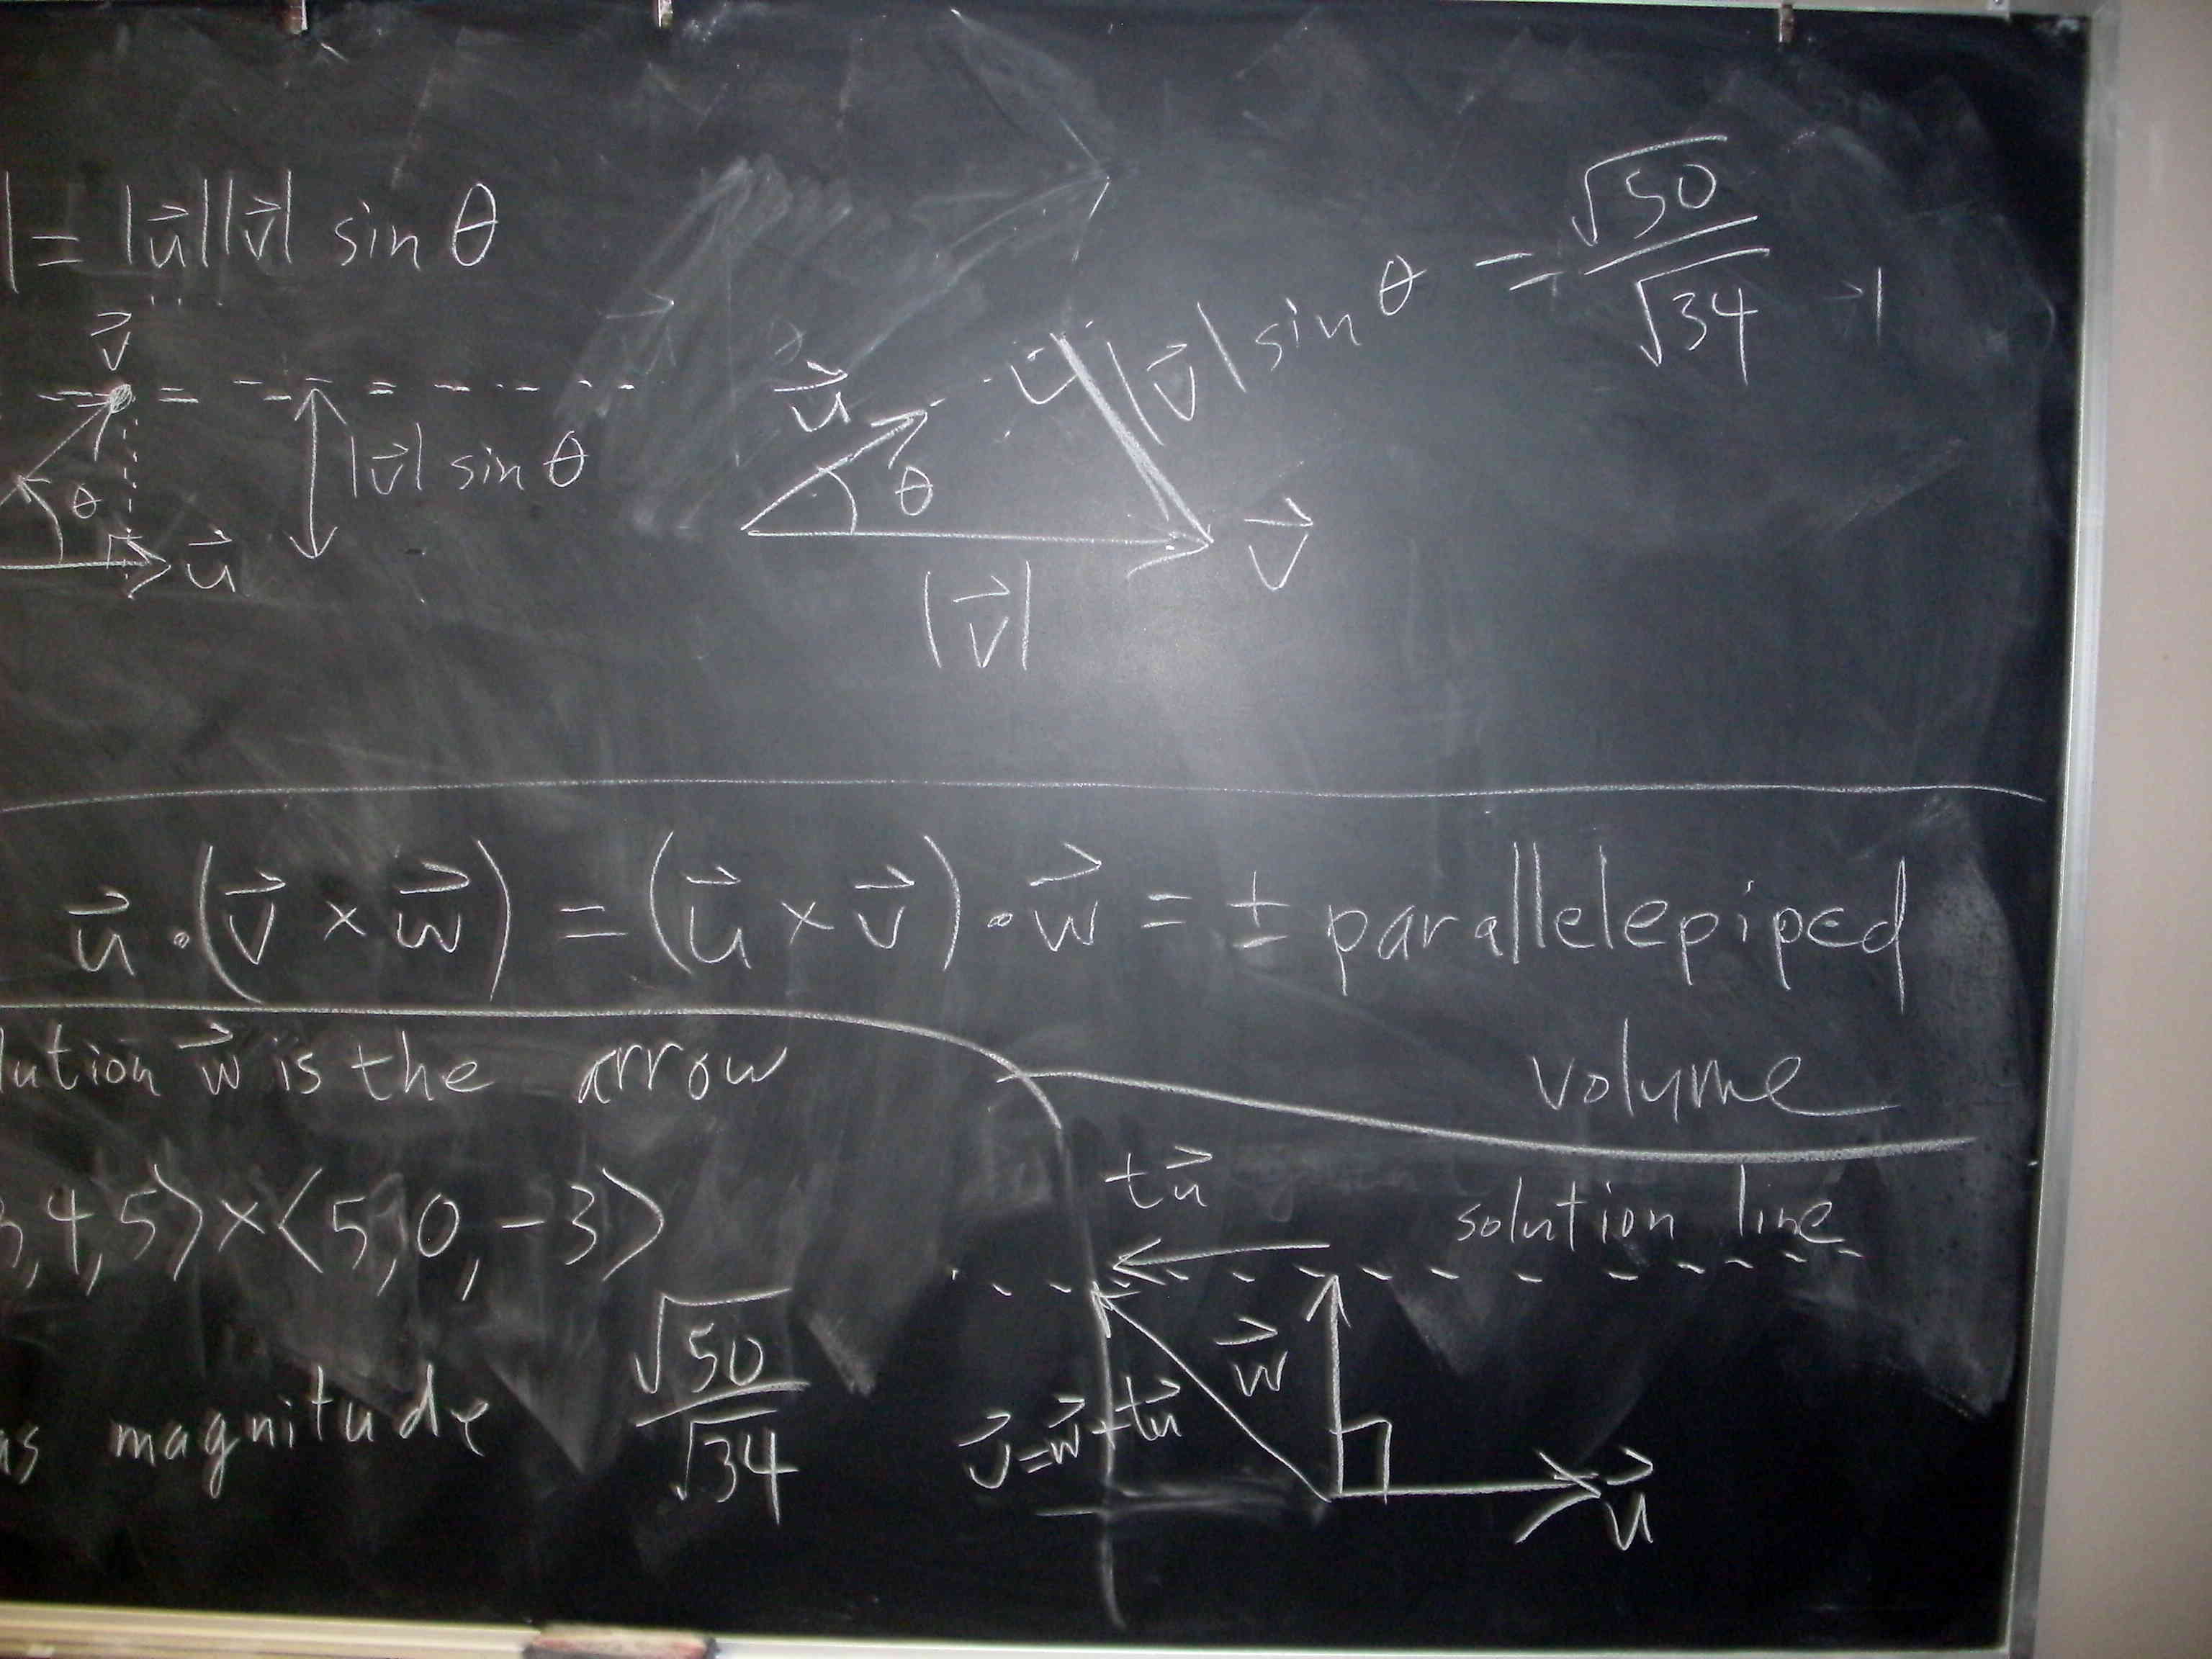 | = |u⃗||v⃗| sin θ
v⃗
|v⃗| sin θ
θ
u⃗
u⃗
θ
|v⃗| sin θ = √50/√34
v⃗
|v⃗|
u⃗ · (v⃗ × w⃗) = (u⃗ × v⃗) · w⃗ = ± parallelepiped
volume
lution w⃗ is the arrow
3,4,5⟩×⟨5,0,-3⟩
as magnitude √50/√34
tu⃗
solution line
w⃗
v⃗=w⃗+tu⃗
u⃗